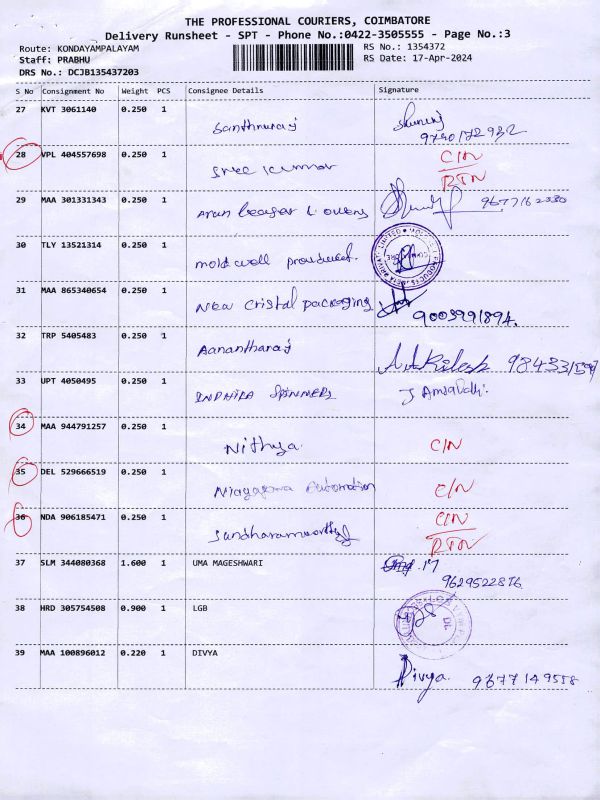 THE PROFESSIONAL COURIERS, COIMBATORE
Delivery Runsheet - SPT - Phone No.:0422-3505555 - Page No.:3
Route: KONDAYAMPALAYAM RS No.: 1354372
Staff: PRABHU RS Date: 17-Apr-2024
DRS No.: DCJB135437203
S No Consignment No Weight PCS Consignee Details Signature
27 KVT 3061140 0.250 1
Santhuraj
28 VPL 404557698 0.250 1 C/N
Sree Kumar RTN
29 MAA 301331343 0.250 1 9677162330
Arun
30 TLY 13521314 0.250 1
mold well
31 MAA 865340654 0.250 1
New Cristal packaging 9003991894.
32 TRP 5405483 0.250 1
Aanantharaj A. Akilesh
33 UPT 4050495 0.250 1
INDHIRA SPINNERS J
34 MAA 944791257 0.250 1
Nithya. C/N
35 DEL 529666519 0.250 1
Niagarwa Automation C/N
36 NDA 906185471 0.250 1 C/N
Sundharamoorthy RTN
37 SLM 344080368 1.600 1 UMA MAGESHWARI
9629522876
38 HRD 305754508 0.900 1 LGB
39 MAA 100896012 0.220 1 DIVYA
Divya. 9677149558